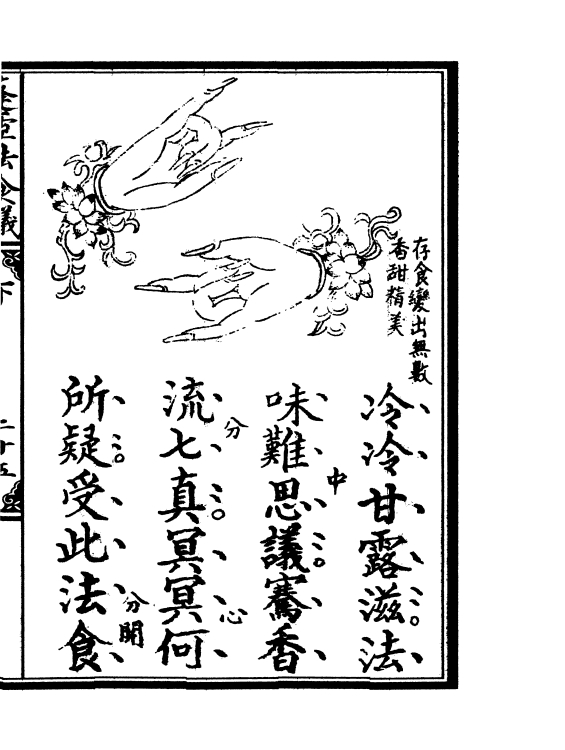 存食變出無數
香甜精美
冷冷甘露滋法
味難思議騫香
流七真冥冥何
所疑受此法食
中
分
心
分開
法食儀
下
二十五